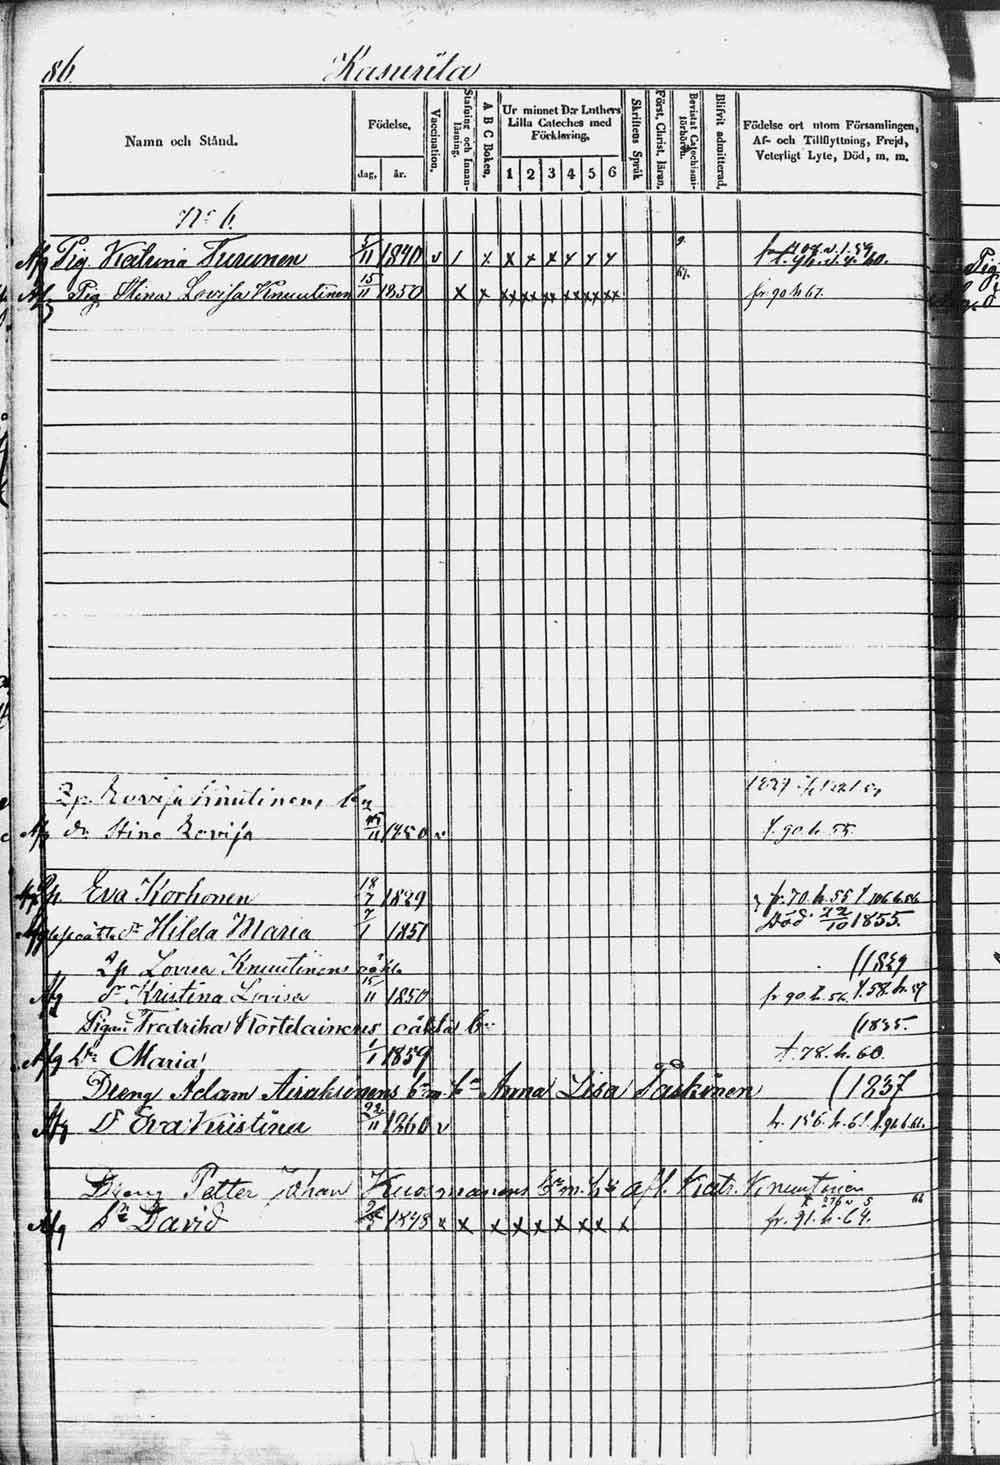 86. Kasurila
Namn och Stånd.
Födelse,
dag, år.
Vaccination.
Stafning och Innanläsning.
A B C Boken.
Ur minnet D:r Luthers Lilla Cateches med Förklaring.
1 2 3 4 5 6
Skriftens Språk
Först. Christ. läran.
Bevistat Catechismiförhören.
Blifvit admitterad.
Födelse ort utom Församlingen, Af- och Tillflyttning, Frejd, Veterligt Lyte, Död, m. m.
N:o 6.
Afg Pig. Katrina Turunen 5/11 1840 v
Pig. Stina Lovisa Knuutinen 15/11 1850 67. fr. 90 h 67.
Lovisa Knutinens
Afg dr Stina Lovisa 15/11 1850 v f. 90. h. 55.
Eva Korhonen 18/7 1829 fr. 70. h. 55
dr Hilda Maria 7/1 1851 Död 22/10 1855.
Lovisa Knuutinens oäkta (1829
Afg dr Kristina Lovisa 15/11 1850 t. 58. h. 59
Pigans Fredrika Kortelainens oäkta b:n (1835.
Afg Maria 1/1 1859 t. 78. h. 60.
Dreng Adam Airaksinens b:n m. h:u Anna Lisa Taskinen (1837
Afg Dr Eva Kristina 22/11 1860 v h. 156. h. 61.
Dreng Petter Johan Kuosmanens b:n m. h:u afl. Katr. Knuutinen
Afg David 1848 x x x x x x x x x fr. 91. h. 64.